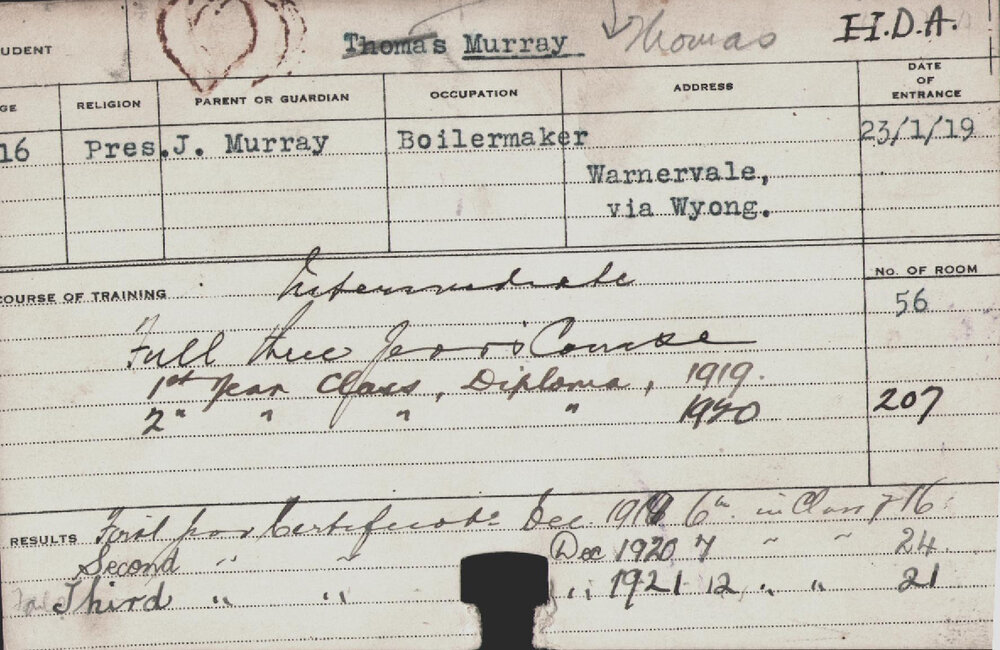 UDENT Thomas Murray Thomas H.D.A.
GE RELIGION PARENT OR GUARDIAN OCCUPATION ADDRESS DATE OF ENTRANCE
16 Pres. J. Murray Boilermaker 23/1/19
Warnervale,
via Wyong.
COURSE OF TRAINING Intermediate No. OF ROOM
56
Full three Years' Course
1st Year Class, Diploma, 1919.
2" " " " 1920 207
RESULTS First year Certificate Dec 1919 6th in Class of 16.
Second " " Dec 1920 7 " " 24.
Third " " " 1921 12 " " 21